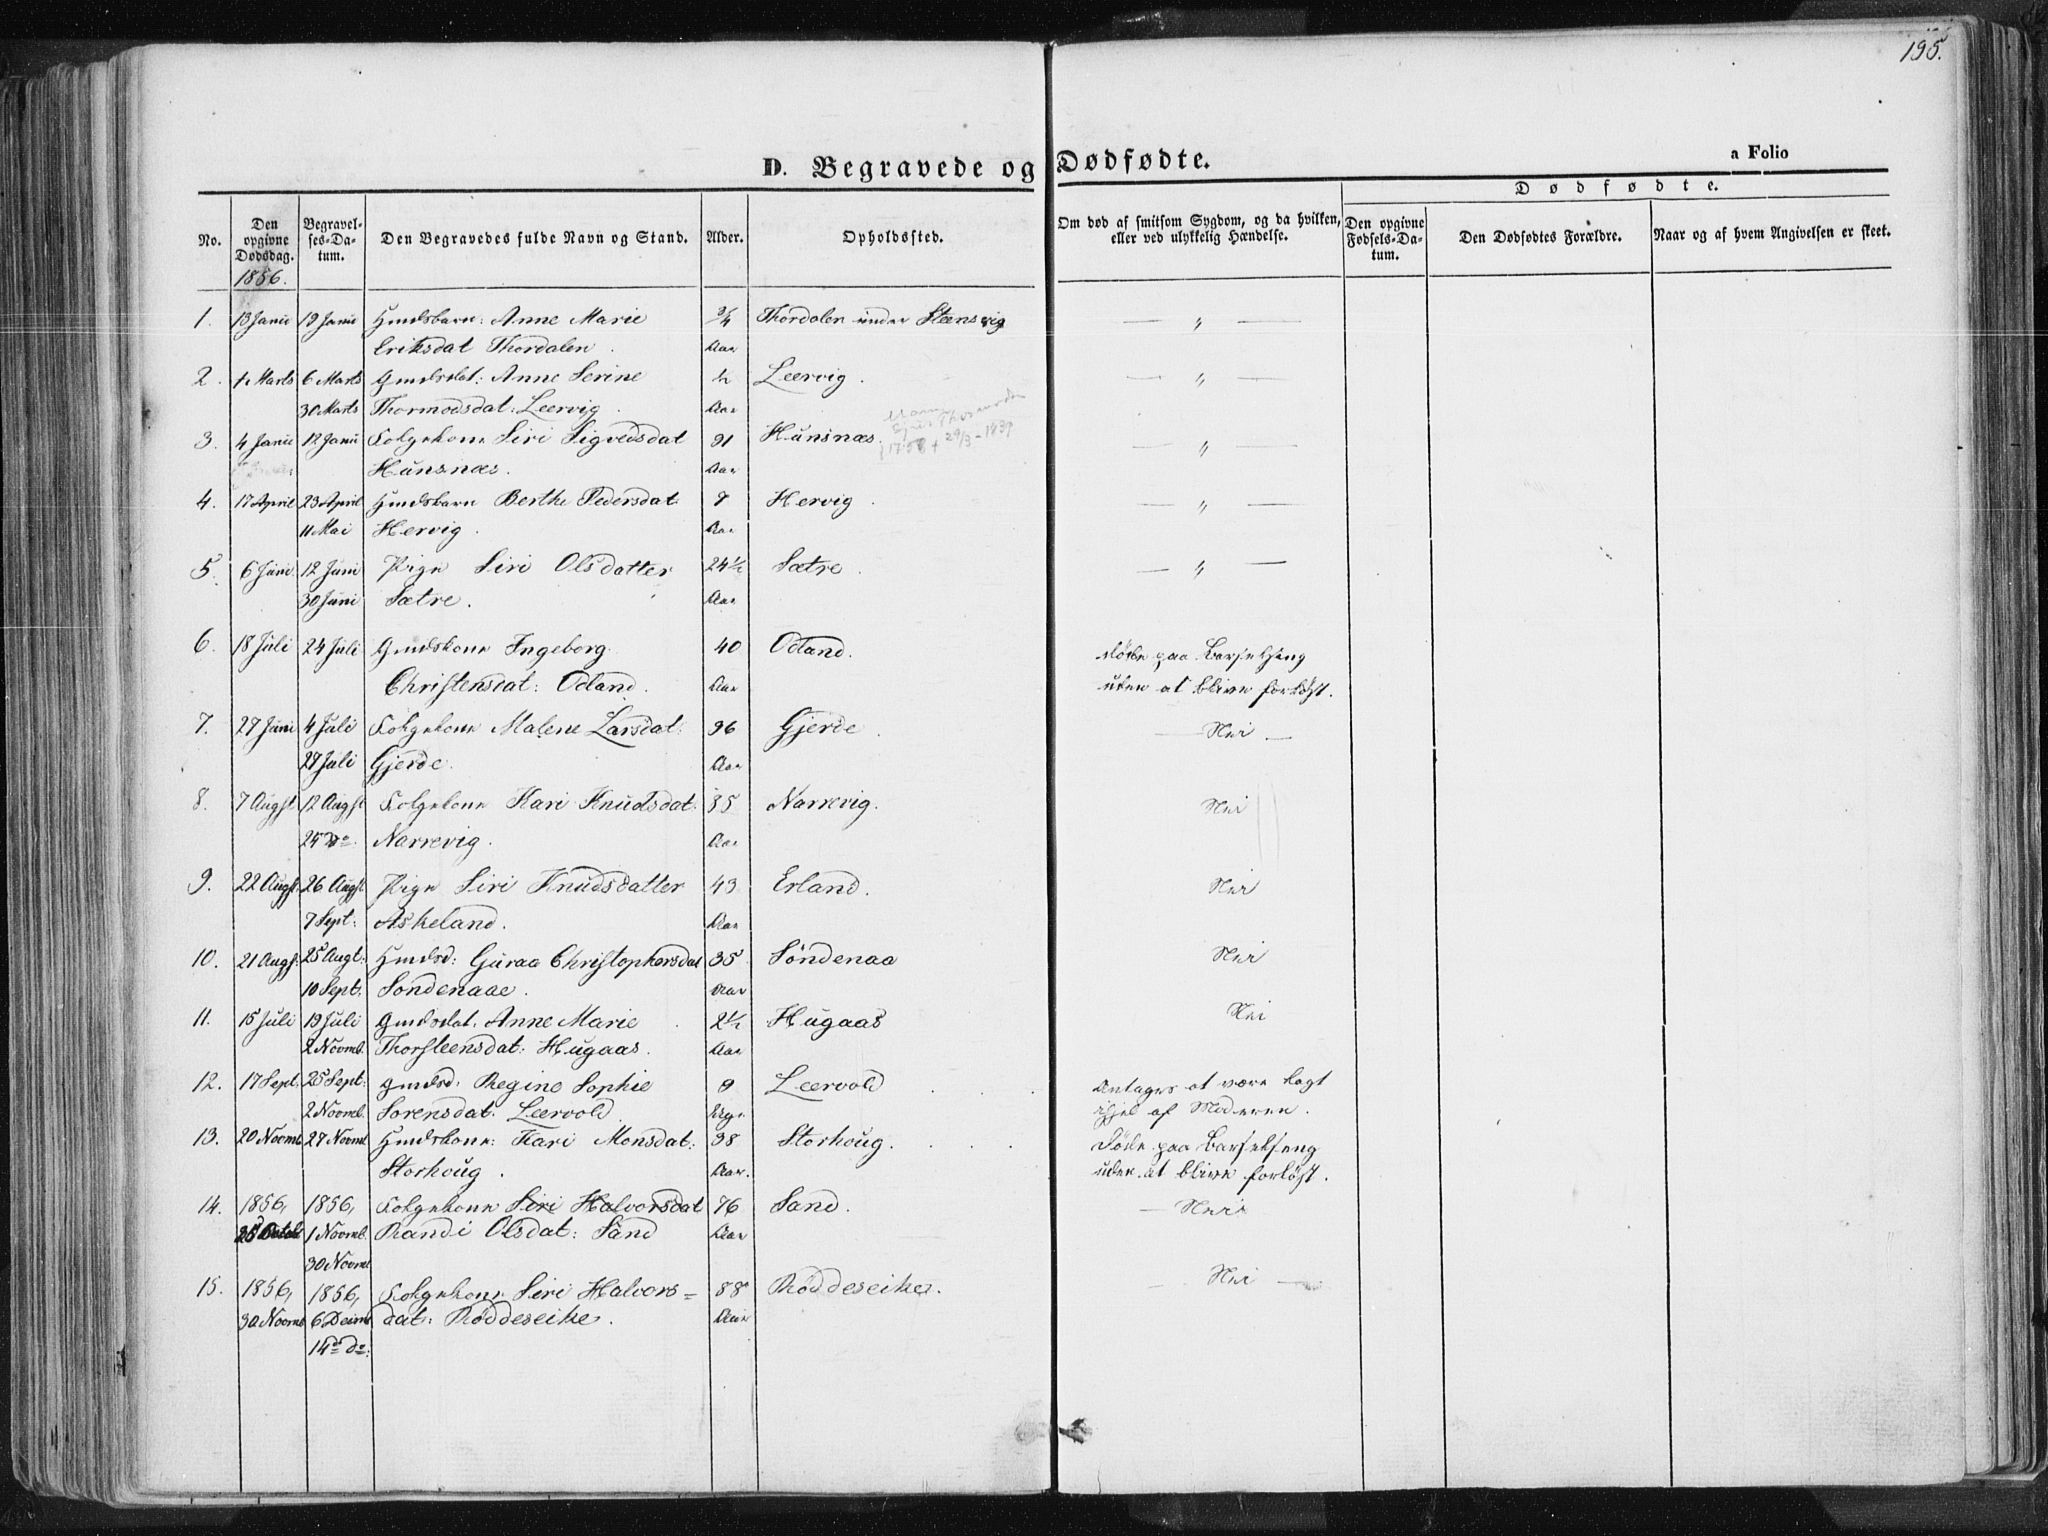 195.
D. Begravede og Dødfødte.
a Folio
No.
Den opgivne Dødsdag.
Begravelses-Datum.
Den Begravedes fulde Navn og Stand.
Alder.
Opholdssted.
Om død af smitsom Sygdom, og da hvilken, eller ved ulykkelig Hændelse.
Dødfødte.
Den opgivne Fødsels-Datum.
Den Dødfødtes Forældre.
Naar og af hvem Angivelsen er skeet.
1856.
1. 13 Janu 19 Janu Gmdsbarn: Anne Marie 3/4 Thordalen under Steensvig — " —
Eriksdat Thordalen. Aar
2. 1 Marts 6 Marts Gmdsdat: Anne Serine 1/2 Leervig. — " —
30 Marts Thormodsdat: Leervig. Aar
3. 4 Janu 12 Janu Folgekone Siri Sigvedsdat 91 Hunsnæs. — " —
Hunsnæs. Aar
29/3-1839
4. 17 April 23 April Gmdsbarn Berthe Pedersdat Hervig. — " —
11 Mai Hervig. Aar
5. 6 Juni 12 Juni Pige Siri Olsdatter 24 1/2 Sætre. — " —
30 Juni Sætre. Aar
6. 18 Juli 24 Juli Gmdskone Ingeborg 40 Odland. døde paa Barselseng
Christensdat: Odland. Aar uden at blive forløst.
7. 27 Juni 4 Juli Folgekone Malene Larsdat: 96 Gjerde. — Nei —
27 Juli Gjerde. Aar
8. 7 Augst 12 Augst Folgekone Kari Knudsdat: 85 Narrevig. Nei
24 do. Narrevig. Aar
9. 22 Augst: 26 Augst Pige Siri Knudsdatter 43 Erland. Nei
7 Sept: Askeland. Aar
10. 21 Augst: 25 Augt: Gmdsd: Guraa Christophersdat 35 Söndenaa Nei
10 Sept. Sondenaae. Aar
11. 15 Juli 19 Juli Gmdsdat. Anne Marie 2 1/2 Hugaas Nei
2 Novmb. Thorsteensdat: Hugaas. Aar
12. 17 Sept: 25 Sept: Gmdsd: Regine Sophie 9 Leervold Antages at være lagt
2 Novmb. Sorensdat: Leervold. Uge ihjel af Moderen.
13. 20 Novmb 27 Novmb Gmdskone: Kari Monsdat: 38 Storhoug. Døde paa Barselseng
Storhoug. Aar. uden at blive forløst.
14. 1856, 1856, Folgekone Siri Halvorsdat 76 Sand. — Nei
1 Novmb. Randi Olsdat: Sand Aar
30 Novmb
15. 1856, 1856, Folgekone Siri Halvors= 88 Røddeseike. — Nei —
30 Novmb 6 Decmb dat: Røddeseike. Aar
14de do: